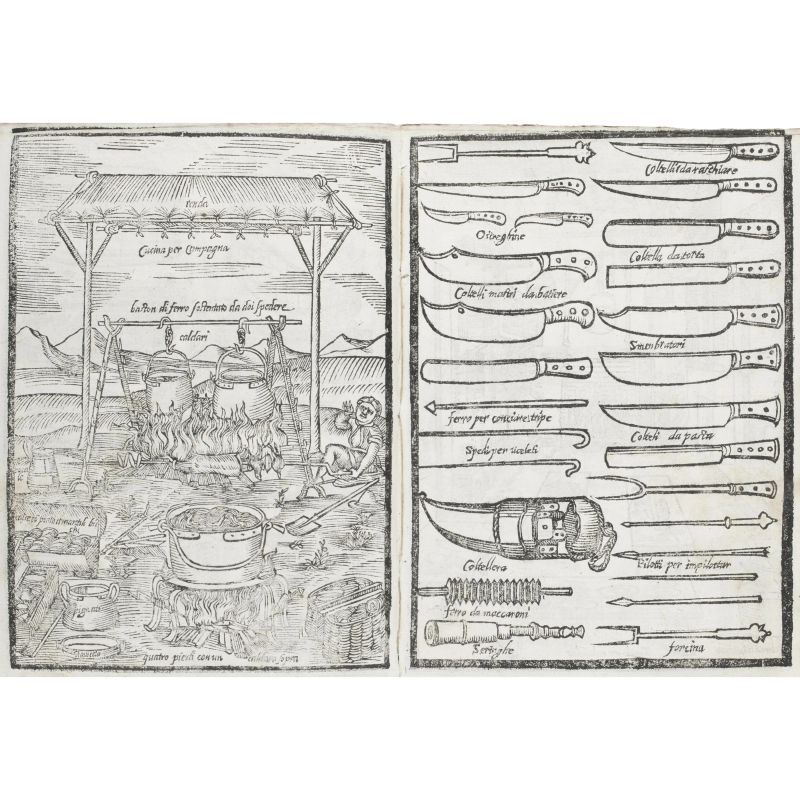 tenda
Cucina per Campagna
baston di ferro sostentato da doi spedere
caldari
bi
chi
quatro piedi con un caldaro sopra
Coltelli da raschiare
Coltella da torta
Coltelli mastri da batere
Smenbratori
ferro per conciare stripe
Colteli da pasta
Spedi per uceleti
Coltellera
Pilotti per impilottar
ferro da maccaroni
Siringhe
forcina